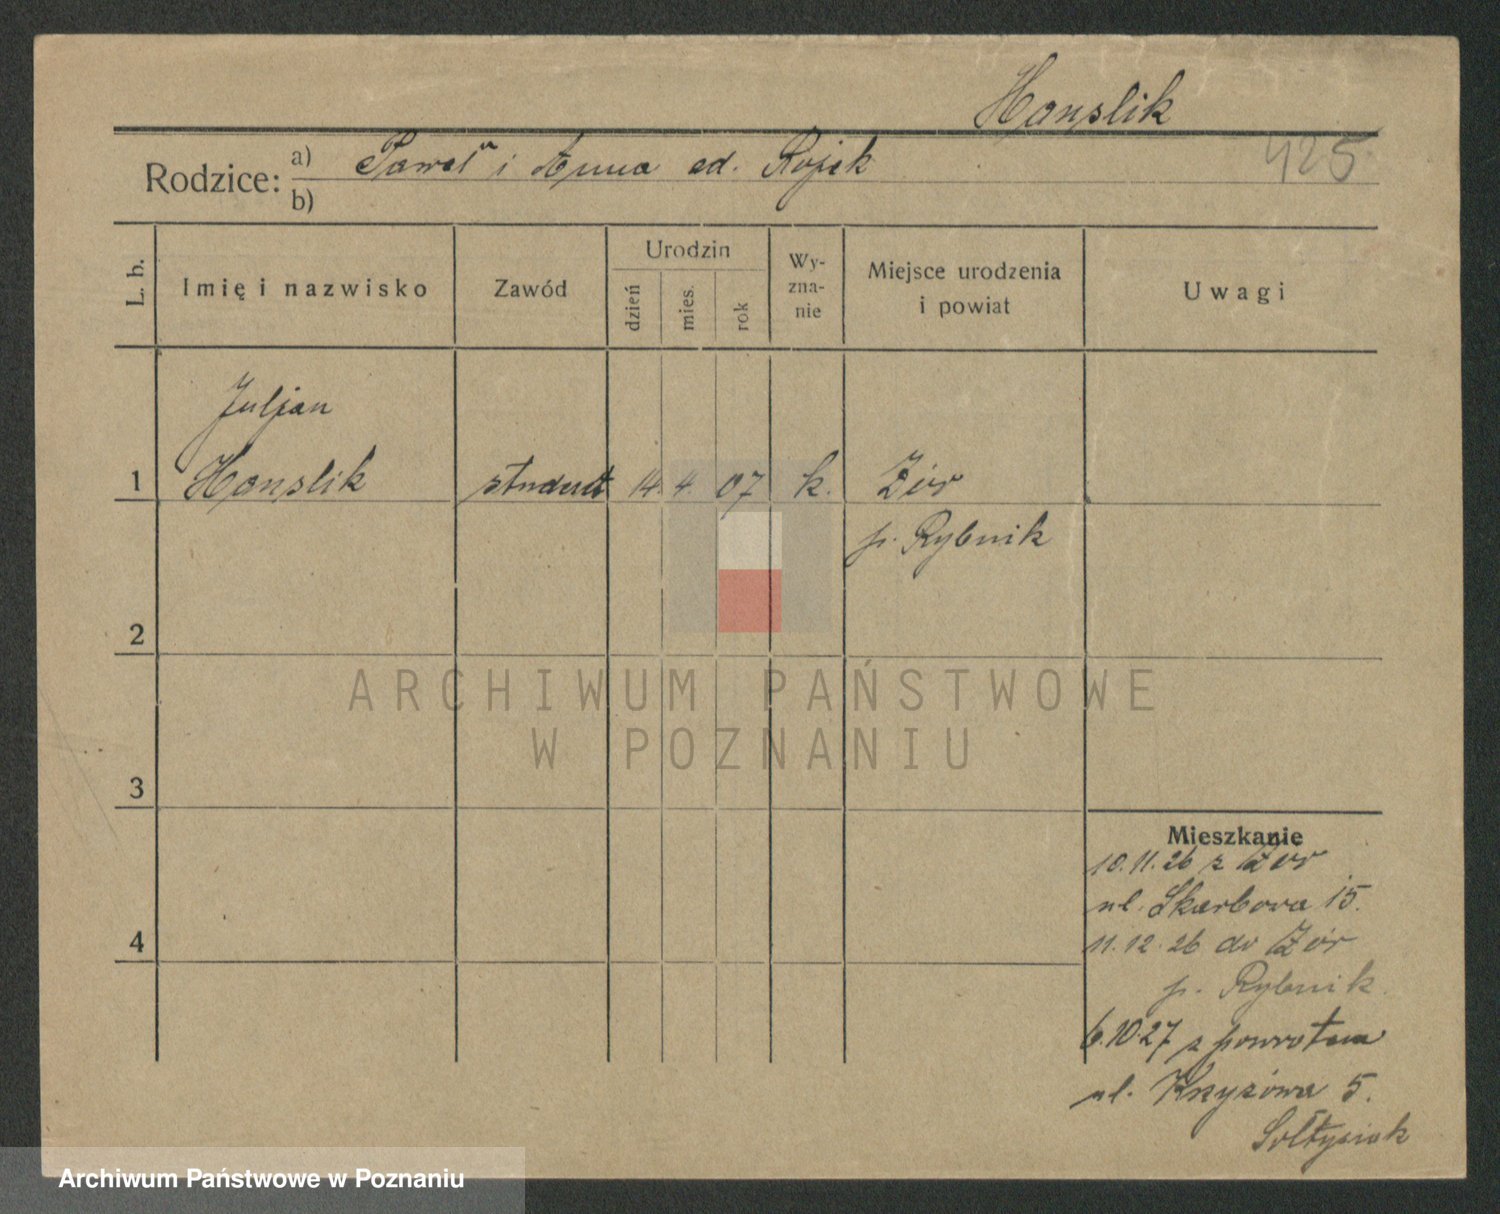 Hanslik
Rodzice: a) Paweł i Anna od. Rojek
425
b)
L. b.
Imię i nazwisko
Zawód
Urodzin
dzień
mies.
rok
Wy-
zna-
nie
Miejsce urodzenia
i powiat
Uwagi
Juljan
1 Hanslik student 14. 4. 07 k. Żór
p. Rybnik
2
3
4
Mieszkanie
10.11.26 z Żor
ul. Skarbowa 15.
11.12.26 do Żór
p. Rybnik.
6.10.27 z powrotem
ul. Krzyżowa 5.
Sołtysiak
ARCHIWUM PAŃSTWOWE
W POZNANIU
Archiwum Państwowe w Poznaniu